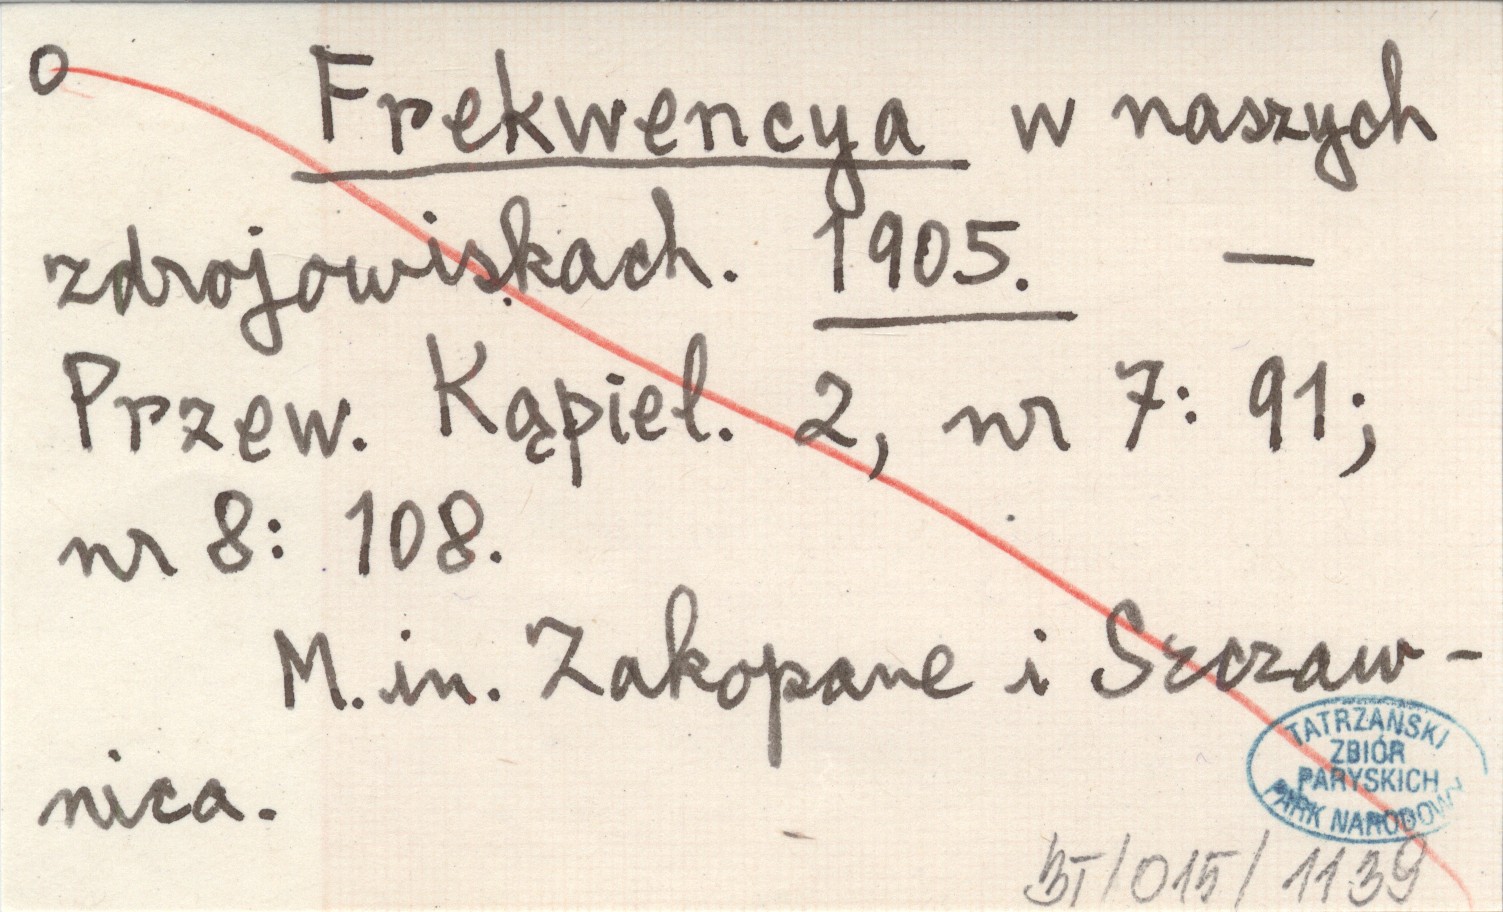 o Frekwencya w naszych
zdrojowiskach. 1905. —
Przew. Kąpiel. 2, nr 7: 91;
nr 8: 108.
M. in. Zakopane i Szczaw-
nica.
TATRZAŃSKI
ZBIÓR
PARYSKICH
PARK NARODOWY
BT/015/1139